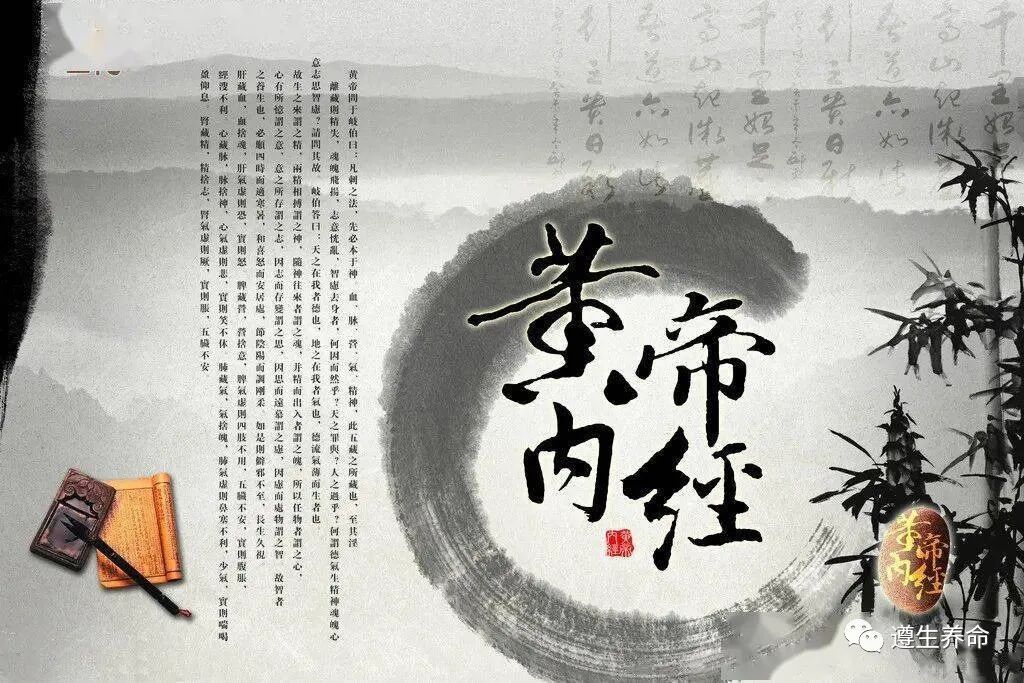 黄帝問于岐伯曰：凡刺之法，先必本于神　血、脉、營、氣、精神，此五藏之所藏也，至其淫
離藏則精失，魂魄飛揚，志意恍亂，智慮去身者，何因而然乎？天之罪與？人之過乎？何謂德氣生精神魂魄心
意志思智慮？請問其故　岐伯答曰：天之在我者德也，地之在我者氣也，德流氣薄而生者也
故生之來謂之精，兩精相搏謂之神，隨神往來者謂之魂，并精而出入者謂之魄，所以任物者謂之心，
心有所憶謂之意，意之所存謂之志，因志而存變謂之思，因思而遠慕謂之慮，因慮而處物謂之智　故智者
之養生也，必順四時而適寒暑，和喜怒而安居處，節陰陽而調剛柔　如是則僻邪不至，長生久視
肝藏血，血捨魂，肝氣虛則恐，實則怒　脾藏營，營捨意，脾氣虛則四肢不用，五臟不安，實則腹脹，
經溲不利　心藏脉，脉捨神，心氣虛則悲，實則笑不休　肺藏氣，氣捨魄，肺氣虛則鼻塞不利，少氣，實則喘喝
盈仰息　腎藏精，精捨志，腎氣虛則厥，實則脹，五臟不安
黄帝
内經
黄帝
内經
遵生养命